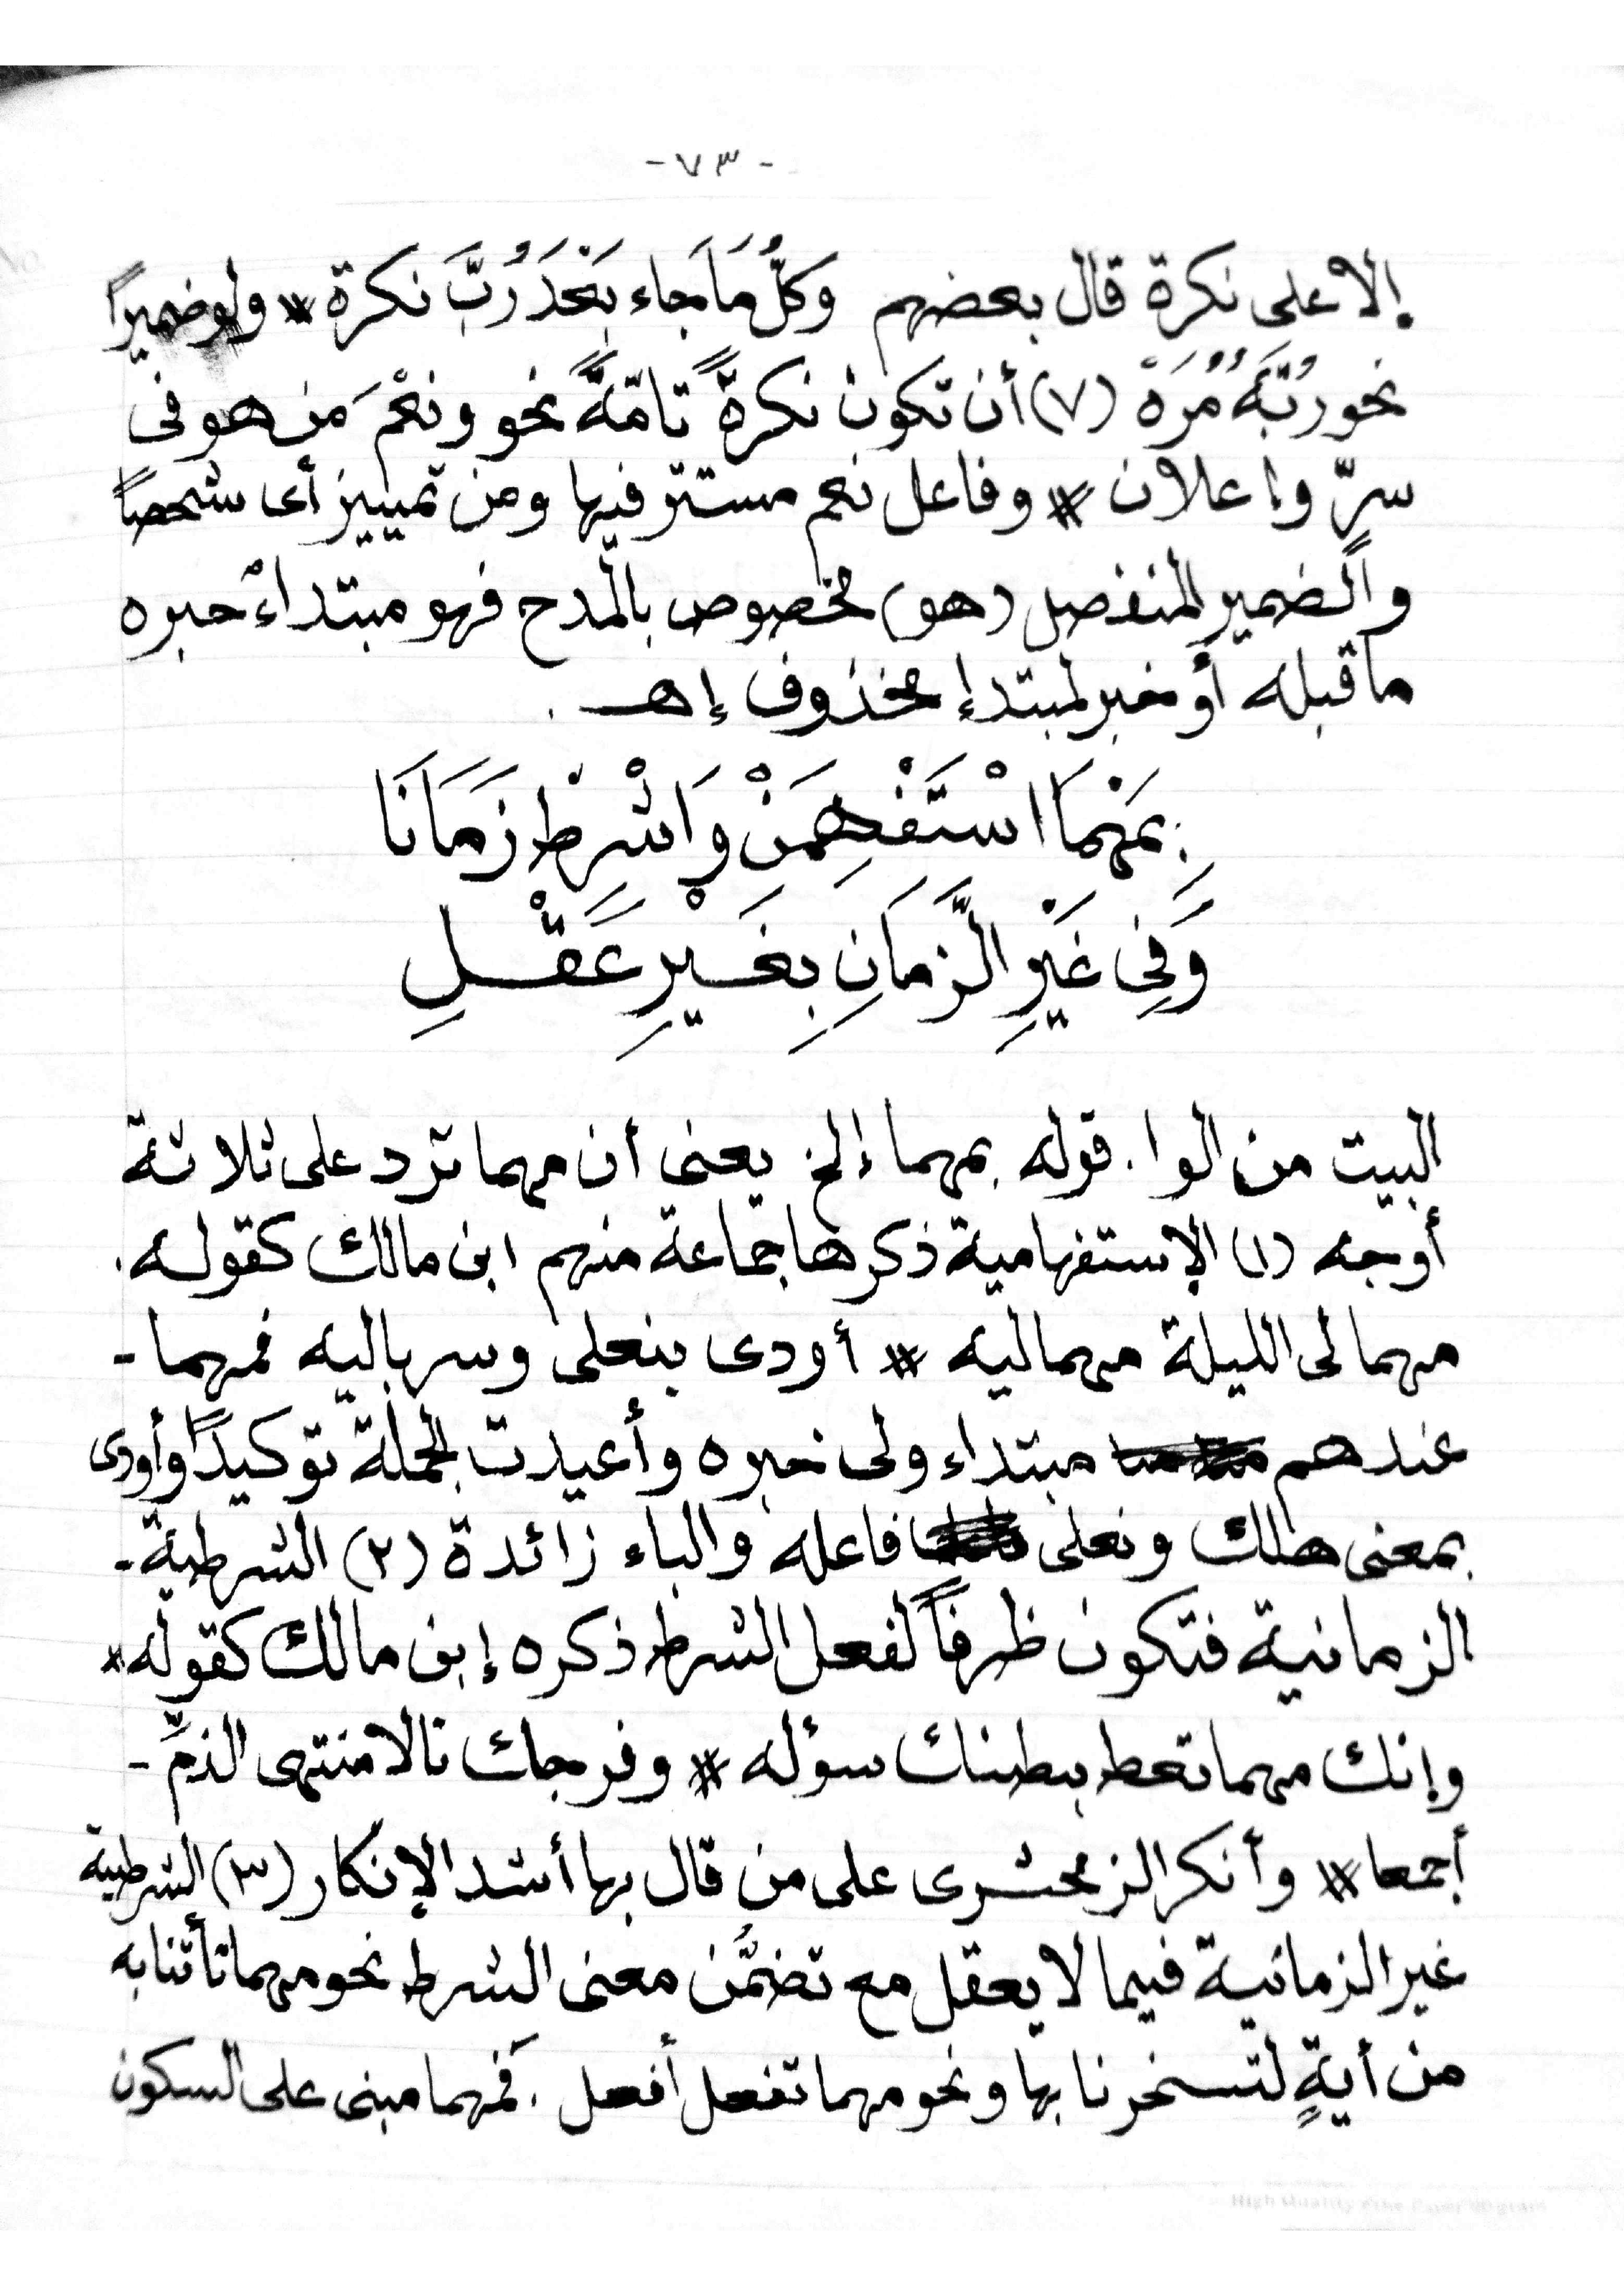 - ٧٣ -
إلا على نكرة قال بعضهم وَكلُّ مَا جَاء بَعْدَ رُبَّ نكرة # ولوضميرًا
نحو رُبَّهُ مُرَهْ (٧) أن تكون نكرةً تامّةً نحو ونعْمَ مَن هو فى
سرّ وإعلان # وفاعل نعم مستتر فيها ومن تمييز أى شخصاً
والضمير المنفصل (هو) مخصوص بالمدح فهو مبتداءٌ خبره
ما قبله أو خبر لمبتدإ محذوف إهـ .
بِمَهْمَا اسْتَفْهِمَنْ وَاشْرِطْ زَمَانَا
وَفِى غَيْرِ الزَّمَانِ بِغَيْرِ عَقْلِ
البيت من الوا . قوله بمهما إلخ يعنى أن مهما ترد على ثلاثة
أوجه (١) الإستفهامية ذكرها جماعة منهم ابن مالك كقوله .
مهما لى الليلة مهماليه # أودى بنعلى وسرباليه فمهما -
عندهم مبتداء ولى خبره وأعيدت الجملة توكيدًا وأودى
بمعنى هلك ونعلى فاعله والباء زائدة (٢) الشرطية -
الزمانية فتكون ظرفاً لفعل الشرط ذكره إبن مالك كقوله #
وإنك مهما تعط بطنك سؤله # وفرجك نالا منتهى الذمِّ -
أجمعا # وأنكر الزمخشرى على من قال بها أشد الإنكار (٣) الشرطية
غير الزمانية فيما لا يعقل مع تضمُّن معنى الشرط نحو مهما تأتنا به
من أيةٍ لتسخرنا بها ونحو مهما تفعل أفعل . فَمهما مبنى على السكون